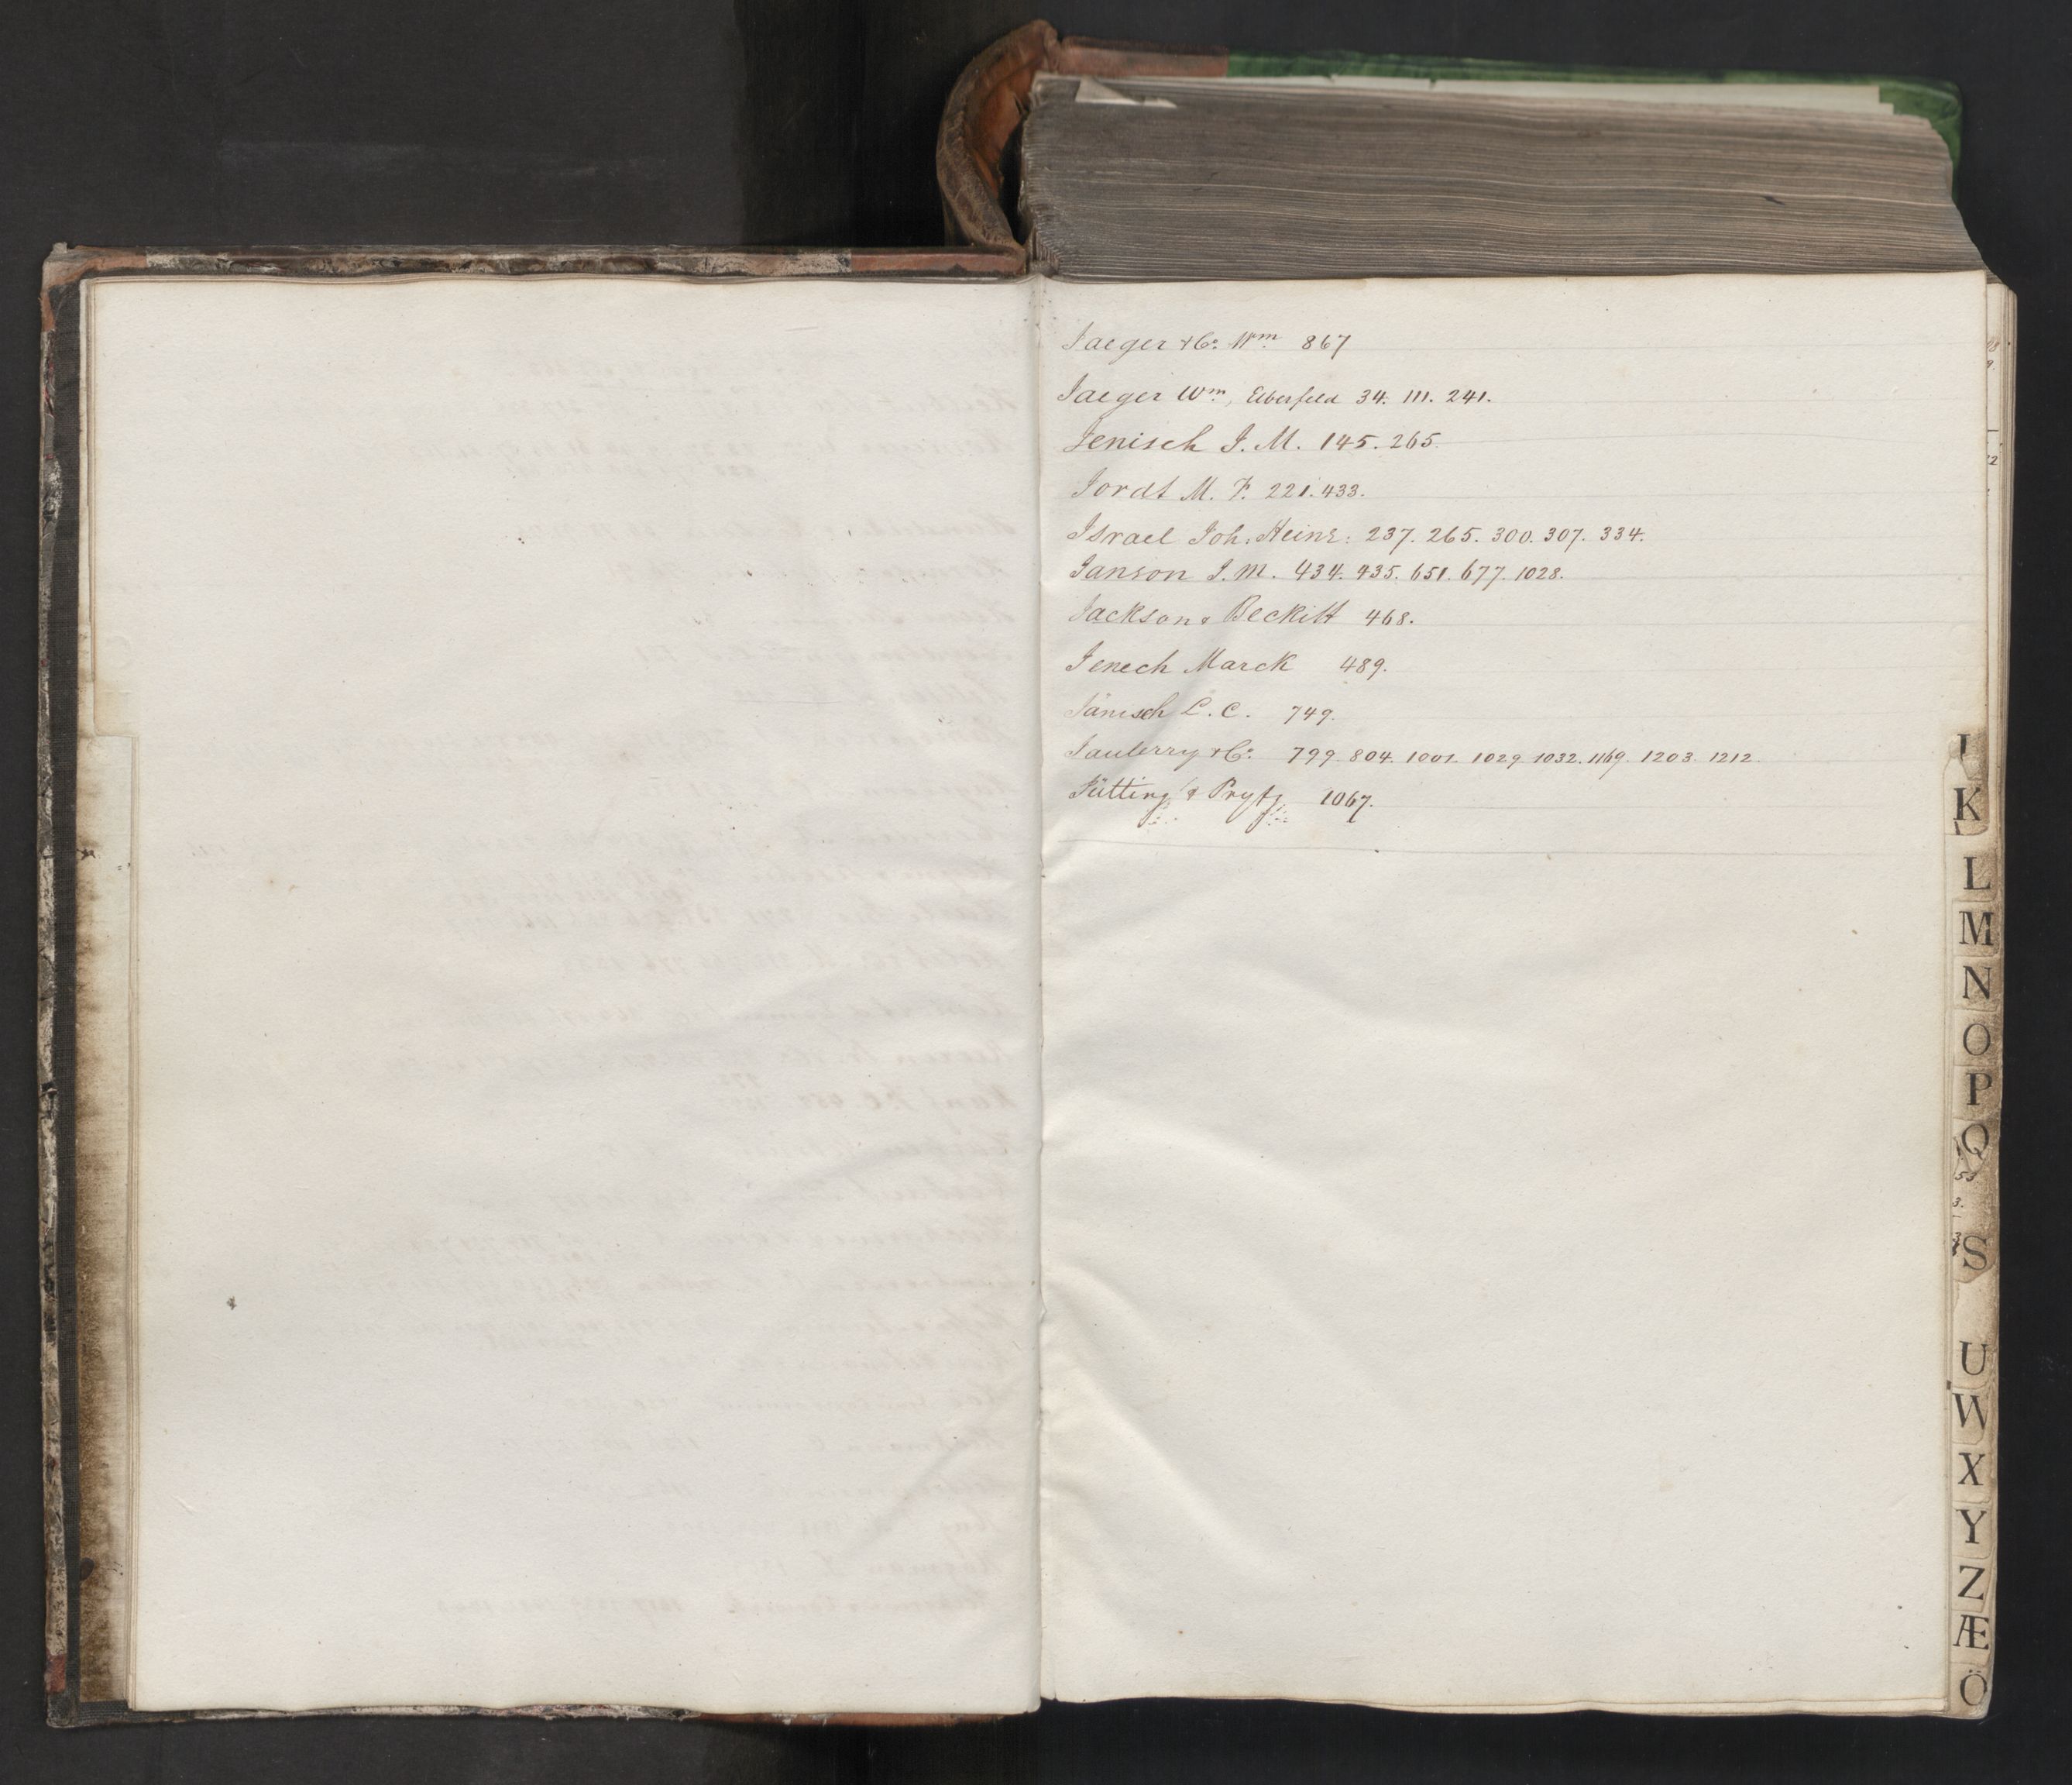 Jaeger & Co: Wm 867
Jaeger Wm, Elberfeld 34. 111. 241.
Jenisch J. M. 145. 265.
Jordt M. F. 221. 433.
Israel Joh. Heinr: 237. 265. 300. 307. 334.
Janson J. M. 434. 435. 651. 677. 1028.
Jackson & Beckitt 468.
Jenech Marck 489.
Jänisch L. C. 749.
Jauberry & Co: 799. 804. 1001. 1029. 1032. 1169. 1203. 1212.
Jütting & 1067.
I
K
L
M
N
O
P
Q
S
U
W
X
Y
Z
Æ
Ö